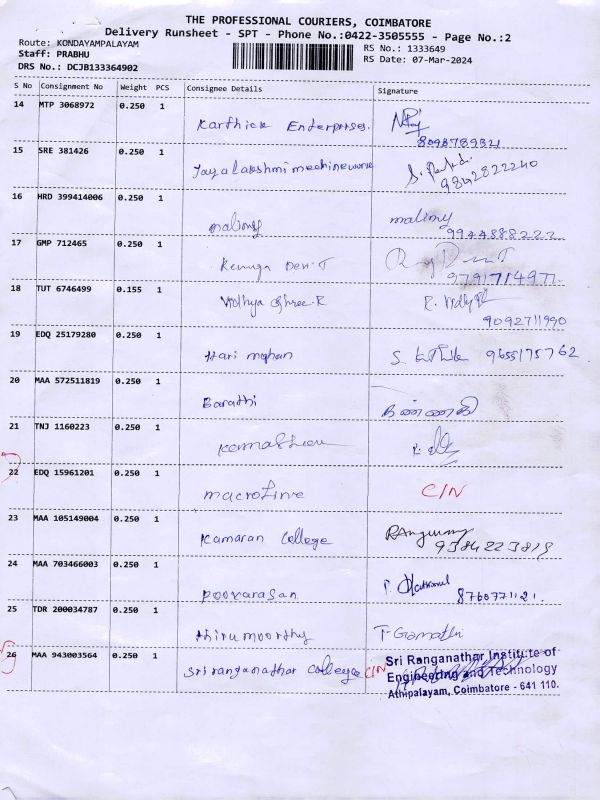 THE PROFESSIONAL COURIERS, COIMBATORE
Delivery Runsheet - SPT - Phone No.:0422-3505555 - Page No.:2
Route: KONDAYAMPALAYAM
RS No.: 1333649
Staff: PRABHU
RS Date: 07-Mar-2024
DRS No.: DCJB133364902
S No Consignment No Weight PCS Consignee Details Signature
14 MTP 3068972 0.250 1 Karthick Enterprises.
8098789321
15 SRE 381426 0.250 1 Jayalakshmi mechineworks
9842822240
16 HRD 399414006 0.250 1 maliony maliony
9944888222
17 GMP 712465 0.250 1 Renuga Devi.T
9791714977
18 TUT 6746499 0.155 1 Vidhya Shree.R
9092711990
19 EDQ 25179280 0.250 1 Hari mohan 9655175762
20 MAA 572511819 0.250 1 Barathi கண்ணகி
21 TNJ 1160223 0.250 1
22 EDQ 15961201 0.250 1 macrofine CIN
23 MAA 105149004 0.250 1 Kamaran College
9384223819
24 MAA 703466003 0.250 1 Poovarasan
8760771121.
25 TDR 200034787 0.250 1 thirumoorthy T. Gomathi
26 MAA 943003564 0.250 1 Sri ranganathar College CIN
Sri Ranganathar Institute of
Engineering and Technology
Athipalayam, Coimbatore - 641 110.